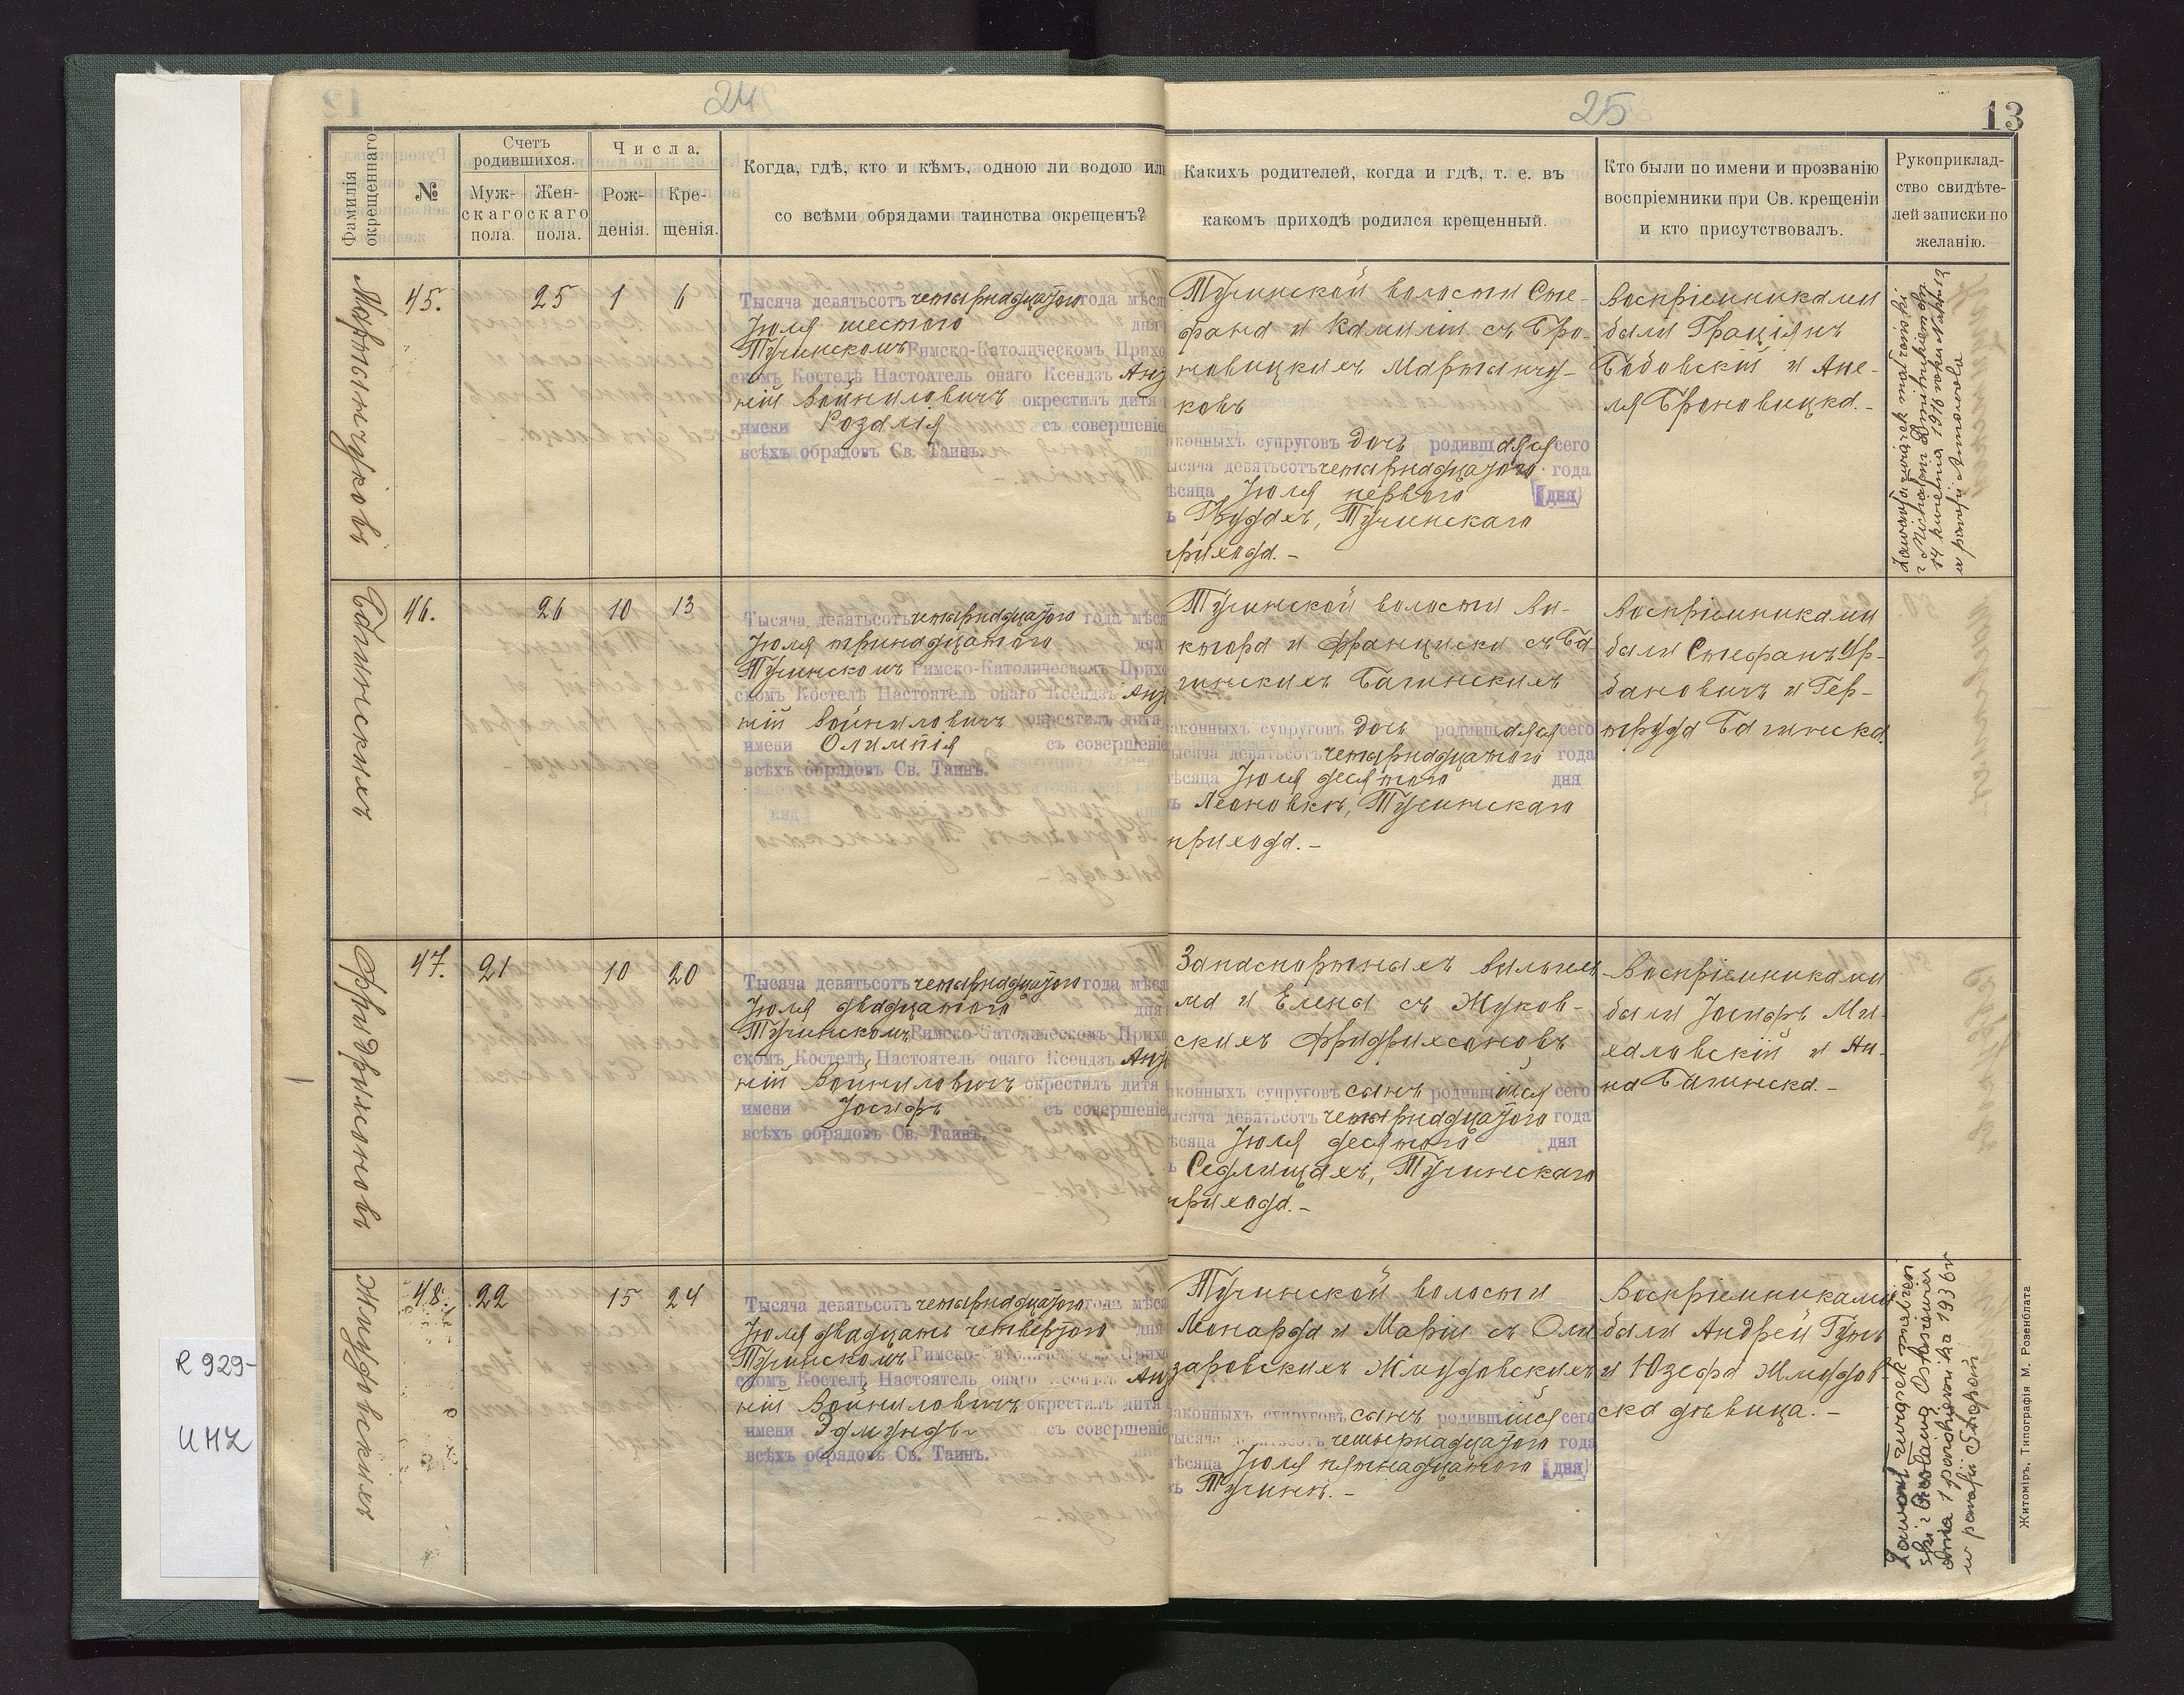 24
25
13
Фамилія окрещеннаго
№
Счетъ родившихся.
Муж-
скаго
пола.
Жен-
скаго
пола.
Числа.
Рож-
денія.
Кре-
щенія.
Когда, гдѣ, кто и кѣмъ, одною ли водою или
со всѣми обрядами таинства окрещенъ?
Какихъ родителей, когда и гдѣ, т. е. въ
какомъ приходѣ родился крещенный.
Кто были по имени и прозванію
воспріемники при Св. крещеніи
и кто присутствовалъ.
Рукоприклад-
ство свидѣте-
лей записки по
желанію.
Мартынчуковъ
45.
25
1
6
Тысяча девятьсотъ четырнадцатого года мѣся
Іюля шестого дня
Тучинскомъ Римско-Католическомъ Прихо
скомъ Костелѣ Настоятель онаго Ксендзъ Анз
ній Войниловичъ окрестилъ дитя
имени Розалія съ совершеніе
всѣхъ обрядовъ Св. Таинъ.
Тучинской волости Сте-
фана и Камиліи съ Бро-
новицкихъ Мартынчу-
ковъ
аконныхъ супруговъ дочь родившаяся сего
ысяча девятьсотъ четырнадцатого года
ѣсяца Іюля перваго дня
ъ Грудахъ, Тучинскаго
рихода.-
Воспріемниками
были Граціянъ
Бобовскій и Ане-
ля Броновицка.-
14 kwietnia 1936 roku
w parafji
Багинскихъ
46.
26
10
13
Тысяча девятьсотъ четырнадцатого года мѣся
Іюля тринадцатого дня
Тучинскомъ Римско-Католическомъ Прихо
скомъ Костелѣ Настоятель онаго Ксендзъ Анз
ній Войниловичъ окрестилъ дитя
имени Олимпія съ совершеніе
всѣхъ обрядовъ Св. Таинъ.
Тучинской волости Ви-
ктора и Франциски съ Ба-
гинскихъ Багинскихъ
аконныхъ супруговъ дочь родившаяся сего
ысяча девятьсотъ четырнадцатого года
ѣсяца Іюля десятого дня
ъ Леоновкѣ, Тучинскаго
прихода.-
Воспріемниками
были Стефанъ Ур-
бановичъ и Гер-
труда Багинска.
Фридрихсоновъ
47.
21
10
20
Тысяча девятьсотъ четырнадцатого года мѣся
Іюля двадцатого дня
Тучинскомъ Римско-Католическомъ Прихо
скомъ Костелѣ Настоятель онаго Ксендзъ Анз
ній Войниловичъ окрестилъ дитя
имени Іосифъ съ совершеніе
всѣхъ обрядовъ Св. Таинъ.
Запаспортныхъ Вильгель-
ма и Елены съ Жуков-
скихъ Фридрихсоновъ
аконныхъ супруговъ сынъ родившійся сего
ысяча девятьсотъ четырнадцатого года
ѣсяца Іюля десятого дня
ъ Седлищахъ, Тучинскаго
рихода.-
Воспріемниками
были Іосифъ Ми-
халовскій и Ан-
на Багинска.-
Жмудовскихъ
48.
22
15
24
Тысяча девятьсотъ четырнадцатого года мѣся
Іюля двадцать четвертого дня
Тучинскомъ Римско-Католическомъ Прихо
скомъ Костелѣ Настоятель онаго Ксендзъ Анз
ній Войниловичъ окрестилъ дитя
имени Эдмундъ съ совершеніе
всѣхъ обрядовъ Св. Таинъ.
Тучинской волости
Леонарда и Маріи съ Оли
заровскихъ Жмудовскихъ
аконныхъ супруговъ сынъ родившійся сего
ысяча девятьсотъ четырнадцатого года
ѣсяца Іюля пятнадцатого дня
ъ Тучинѣ.-
Воспріемниками
были Андрей Гунь
и Юзефа Жмудов-
ска дѣвица.-
Zawarł związek małżeń
ski z
dnia 1 października 1936 r
w parafji
Житоміръ, Типографія М. Розенблата
R 929-
UHZ